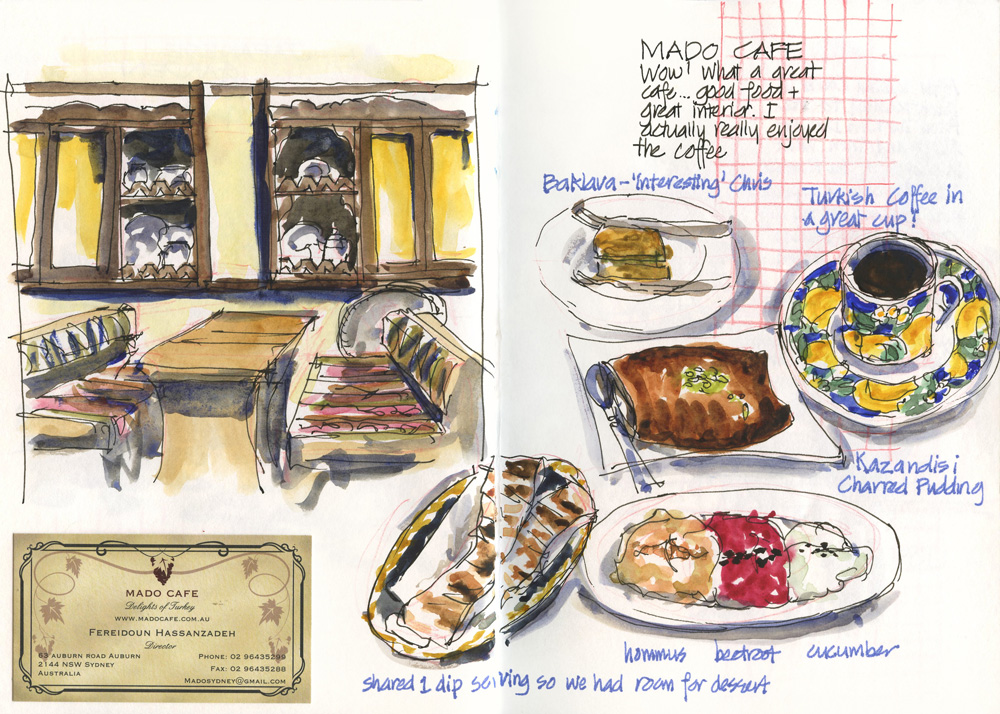 MADO CAFE
Wow! What a great
cafe... good food +
great interior. I
actually really enjoyed
the coffee
Baklava - 'interesting' Chris
Turkish coffee in
a great cup!
Kazandisi
Charred Pudding
hommus beetroot cucumber
shared 1 dip serving so we had room for dessert
MADO CAFE
Delights of Turkey
WWW.MADOCAFE.COM.AU
FEREIDOUN HASSANZADEH
Director
63 AUBURN ROAD AUBURN
2144 NSW SYDNEY
AUSTRALIA
PHONE: 02 96435299
FAX: 02 96435288
MADOSYDNEY@GMAIL.COM